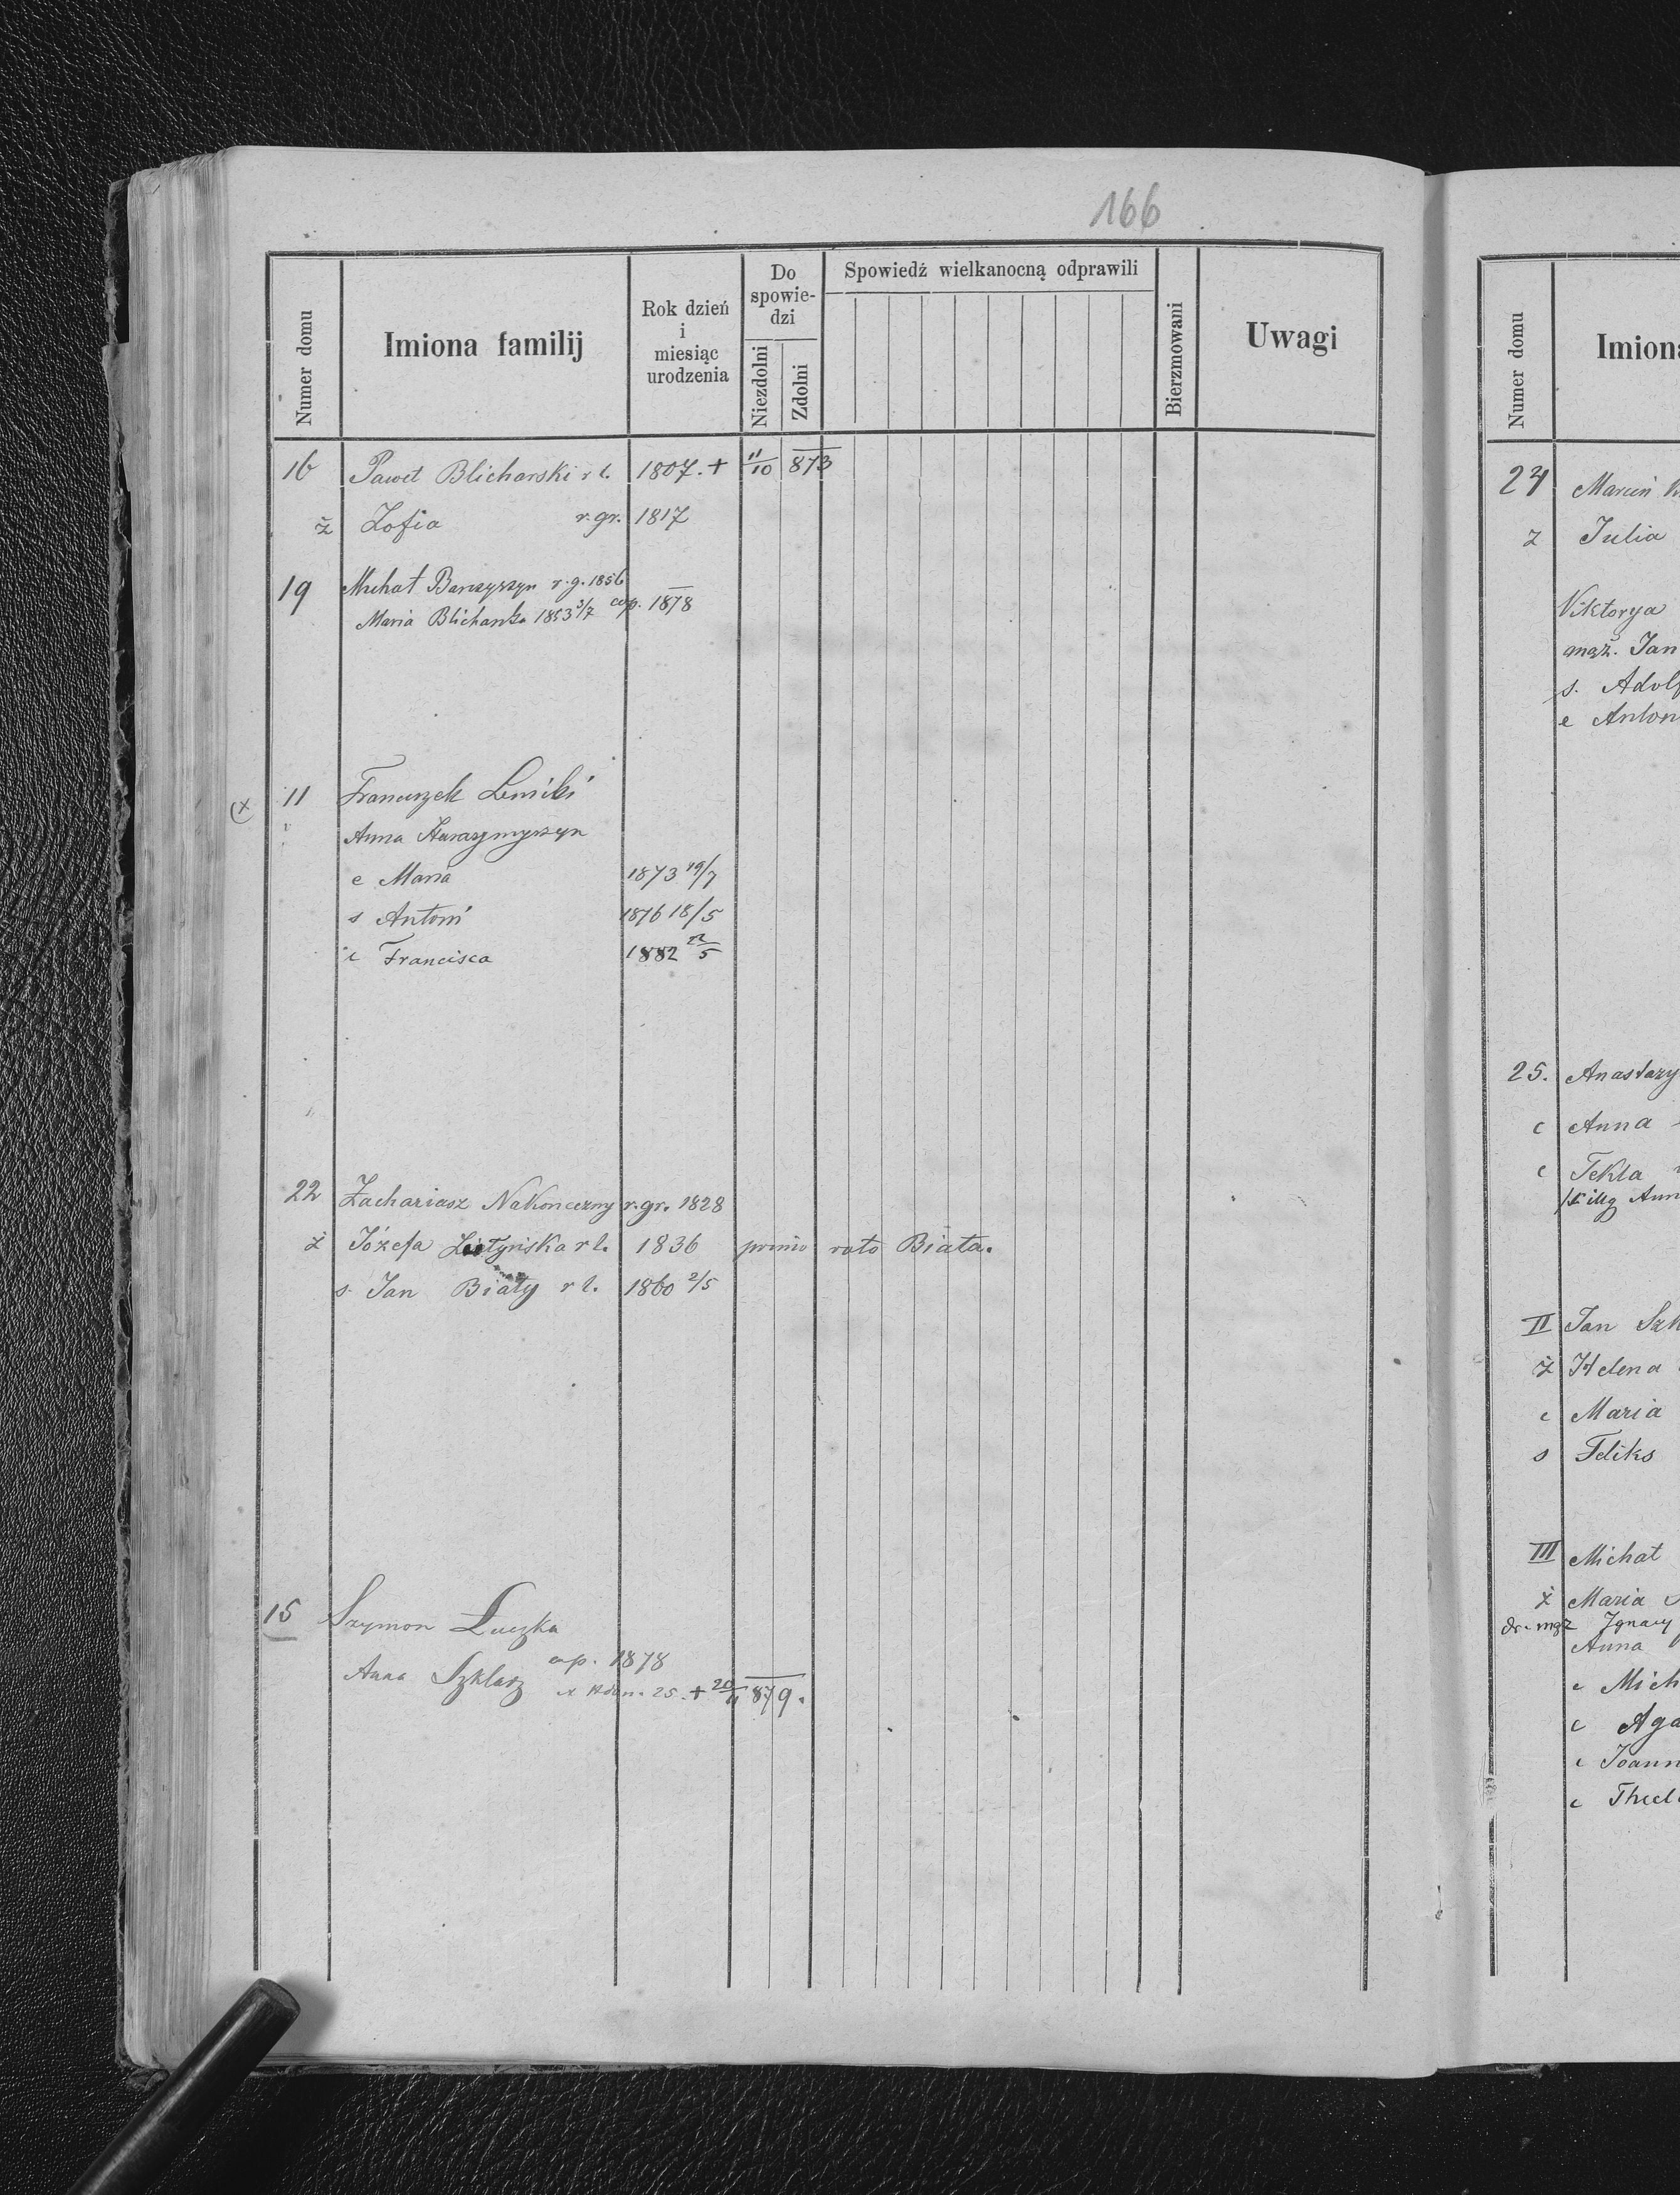 166
Numer domu
Imiona familij
Rok dzień i miesiąc urodzenia
Do spowiedzi
Niezdolni
Zdolni
Spowiedź wielkanocną odprawili
Bierzmowani
Uwagi
16 Paweł Blicharski r l. 1807. + 11/10 873
ż Zofia r. gr. 1817
19 Michał r. g. 1856
Maria 1853 3/7 cop. 1878
(x 11 Franciszek
Anna
c Maria 1873 19/7
s Antoni 1876 18/5
c Francisca 1882 22/5
22 Zachariasz Nakonczny r. gr. 1828
ż Józefa r l. 1836 primo voto Biała.
s. Jan Biały r l. 1860 2/5
15 Szymon Łuczka
cop. 1878
Anna Szklarz 25. + 20/11 879.
Numer domu
Imiona
24 Marcin
ż Julia
Wiktorya
mąż. Jan
s. Adolf
c Anton
25. Anastazy
c Anna
c Tekla
illg Ann
II Jan Szk
ż Helena
c Maria
s Feliks
III Michał
ż Maria
dr. mąż Ignacy
Anna
c Mich
c Aga
c Joann
c Thecl